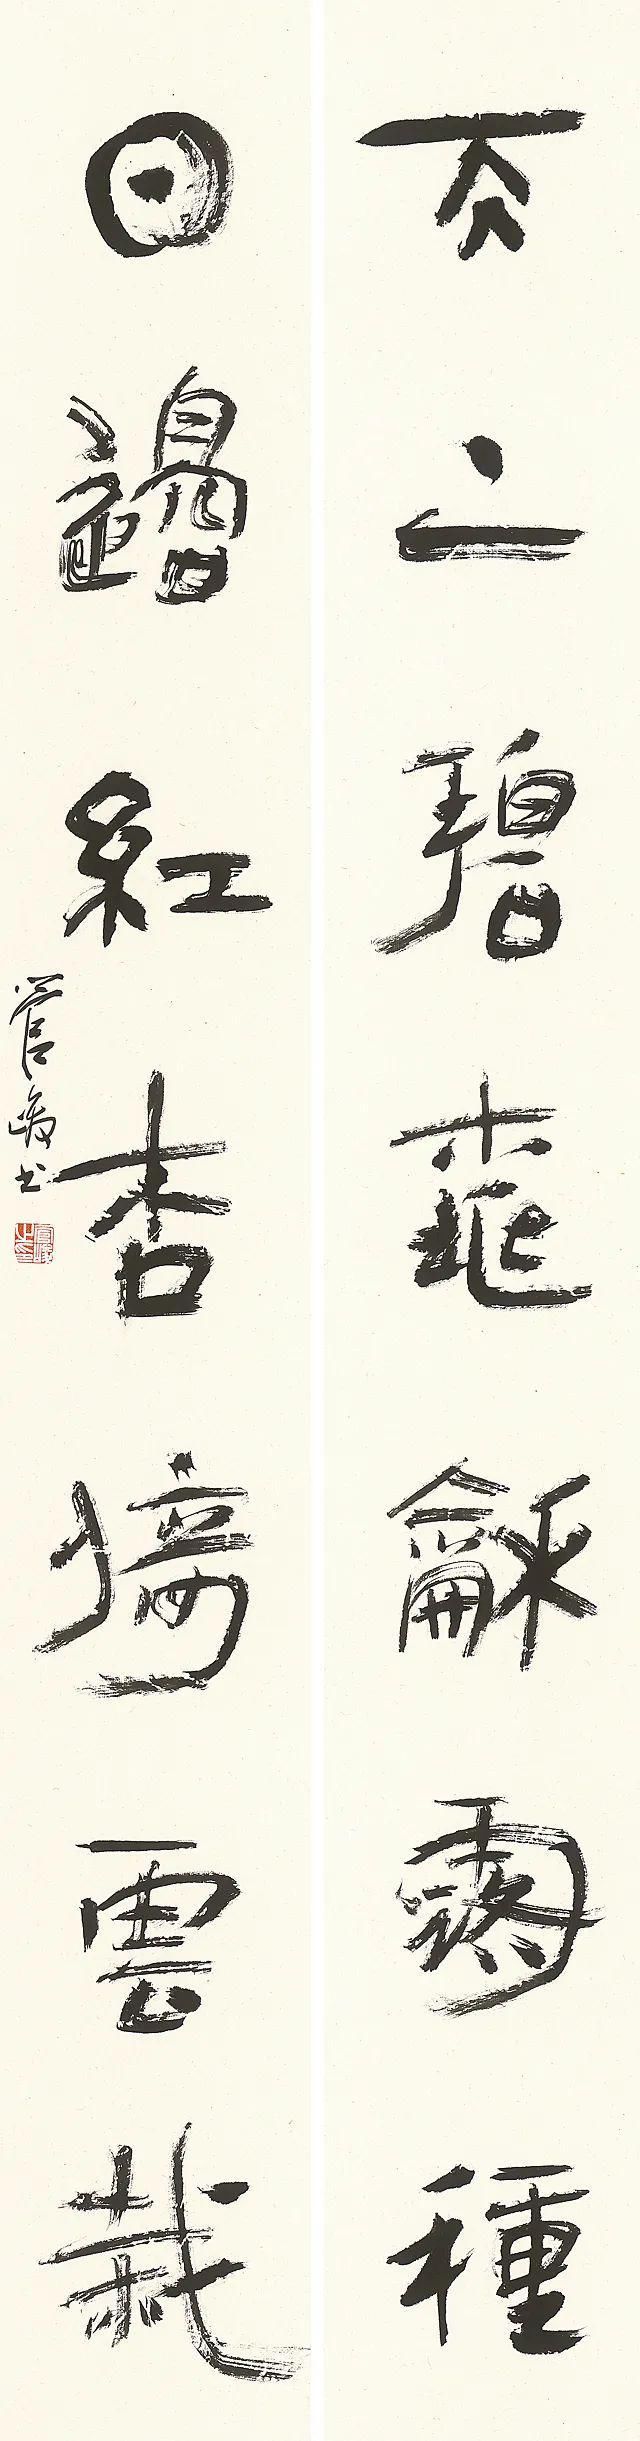 天上碧桃龢露種
日邊紅杏倚雲栽
管峻書